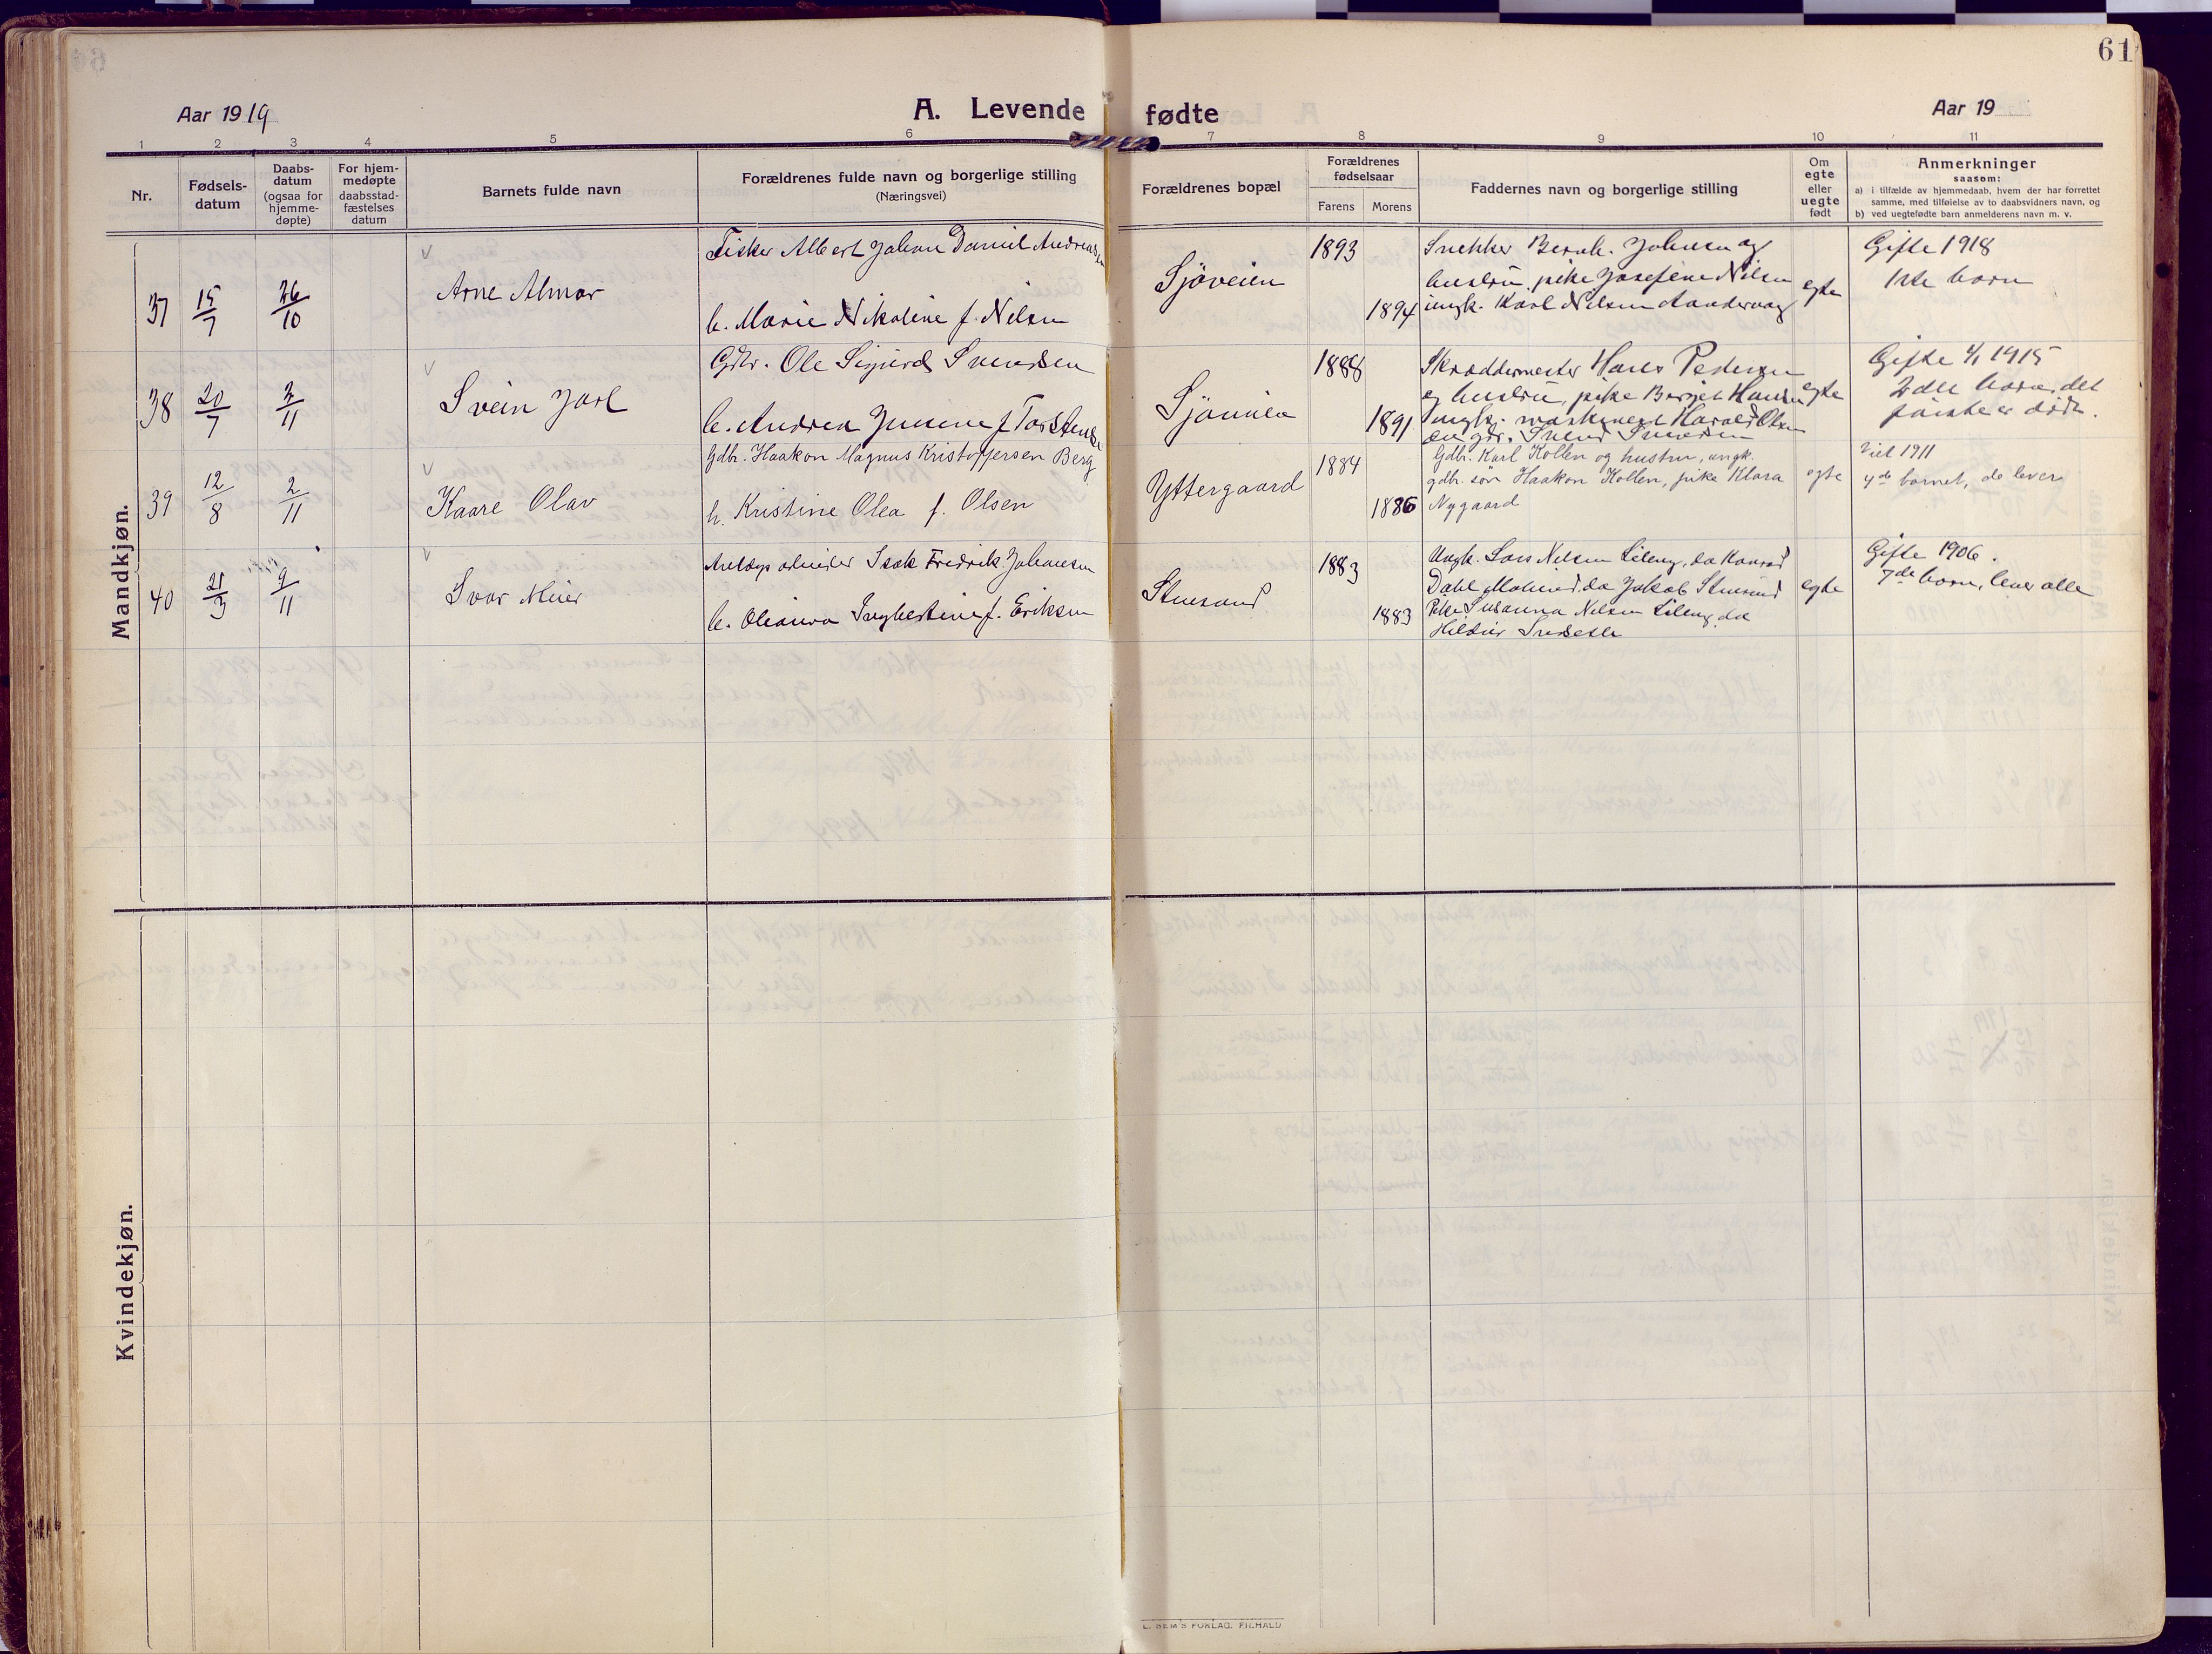 61
Aar 1919
A. Levende fødte
Aar 19
1 2 3 4 5 6 7 8 9 10 11
Nr.
Fødsels-
datum
Daabs-
datum
(ogsaa for
hjemme-
døpte)
For hjem-
medøpte
daabsstad-
fæstelses
datum
Barnets fulde navn
Forældrenes fulde navn og borgerlige stilling
(Næringsvei)
Forældrenes bopæl
Forældrenes
fødselsaar
Farens Morens
Faddernes navn og borgerlige stilling
Om
egte
eller
uegte
født
Anmerkninger
saasom:
a) i tilfælde av hjemmedaab, hvem der har forrettet
samme, med tilføielse av to daabsvidners navn, og
b) ved uegtefødte barn anmelderens navn m. v.
Mandkjøn.
37 15/7 26/10
Arne Almar
Fisker Albert Johan Daniel Andreassen
h. Marie Nikoline f. Nilsen
Sjøveien
1893
1894
Snekker Bernh. Johnsen og
hustru, pike Josefine Nilsen
ungk. Karl Nilsen Aandervag
egte
Gifte 1918
1ste barn
38 20/7 2/11
Svein Jarl
Gbr. Ole Sigurd Svendsen
h. Andrea Jensine f Torstensen
Sjøveien
1888
1891
Skræddermester Hans Pedersen
og hustru, pike Borgel Hansen
ungk. maskinest Harald Olsen
egte
Gifte 4/1 1915
2det barn, det
første er død.
39 12/8 2/11
Kaare Olav
Gdbr. Haakon Magnus Kristoffersen Berg
h. Kristine Olea f. Olsen
Yttergaard
1884
1886
Gdbr. Karl Kollen og hustru, ungk.
gdbr. søn Haakon Kollen, pike Klara
Nygaard
egte
Viet 1911
4de barnet, de lever
40 21/3 9/11
Ivar Meier
Anlægsarbeider Isak Fredrik Johansen
h. Oleanna Ingbertine f. Eriksen
Stuesand
1883
1883
Ungk. Lars Nelsen Lileng, do Konrad
Dahl Molund, do Jakob Stuesand
Pike Susanna Nelsen Lileng do
egte
Gifte 1906.
7de barn, lever alle
Kvindekjøn.
E. SEM'S FORLAG, FR.HALD